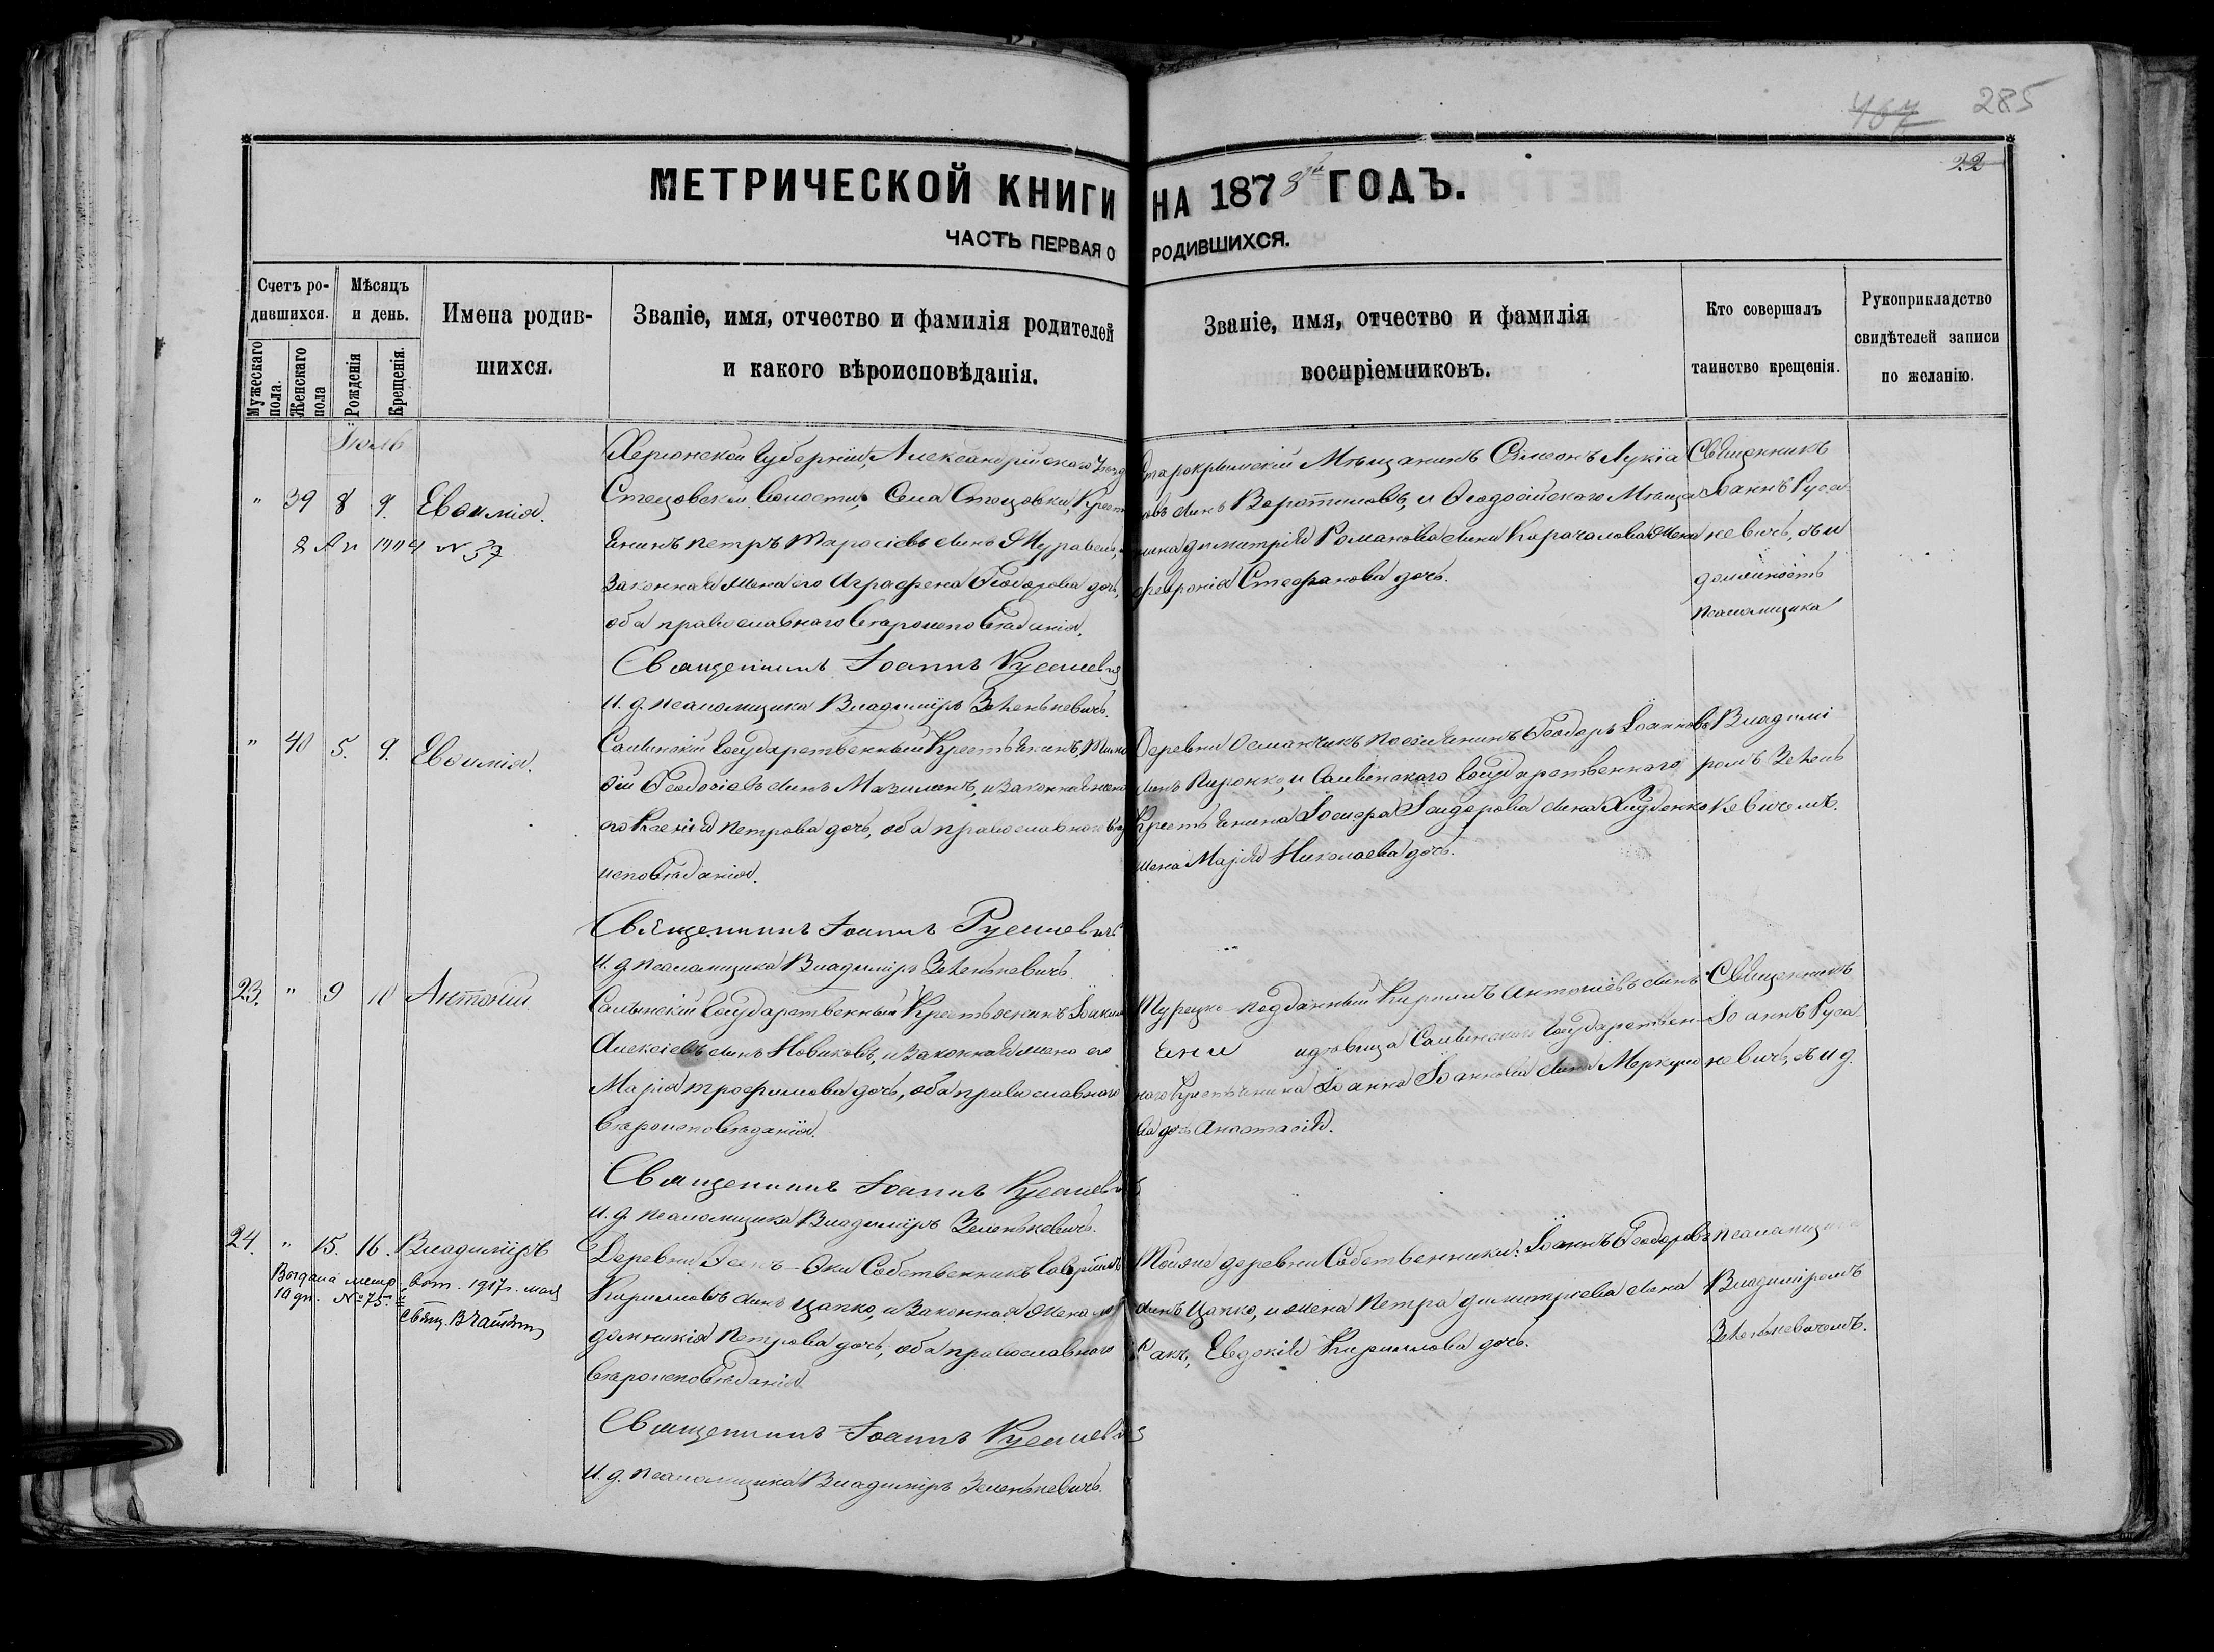 467 285
22
МЕТРИЧЕСКОЙ КНИГИ НА 1878й ГОДЪ.
ЧАСТЬ ПЕРВАЯ О РОДИВШИХСЯ.
Счетъ родившихся.
Мужескаго пола.
Женскаго пола
Мѣсяцъ и день.
Рожденія
Крещенія.
Имена родившихся.
Званіе, имя, отчество и фамилія родителей
и какого вѣроисповѣданія.
Званіе, имя, отчество и фамилія
воспріемниковъ.
Кто совершалъ
таинство крещенія.
Рукоприкладство
свидѣтелей записи
по желанію.
Іюль
" 39 8 9. Евѳимія.
8 Ап 1904 № 37
Херсонской Губерніи, Александрійскаго Уѣзд
волости, Села Крест
янинъ Петръ Тарасіевъ сынъ Журавель,
законная жена его Агрофена Ѳеодорова дочь,
оба православнаго вѣроисповѣданія.
Священникъ Іоаннъ Русаневичъ
И. д. псаломщика Владиміръ Зеленькевичъ.
Старокрымскій Мѣщанинъ Симеонъ Лукіа
новъ сынъ и Ѳеодосійскаго Мѣща
нина Димитрія Романова сына Карачалова жена
Февронія Стефанова дочь.
Священникъ
Іоаннъ Руса
невичъ, съ и
должность
псаломщика
" 40 5. 9. Евѳимія.
Салынскій Государственный Крестьянинъ,
Ѳеодосіевъ сынъ и законная жена
его Ксенія Петрова дочь, оба православнаго вѣро
исповѣданія.
Священникъ Іоаннъ Русаневичъ
И. д. псаломщика Владиміръ Зеленькевичъ.
Деревни Османчикъ поселянинъ Ѳеодоръ Іоанновъ
сынъ и Салынскаго Государственнаго
Крестьянина сына
жена Марія Николаева дочь.
Владимі
ромъ Зелень
кевичемъ.
23. " 9 10 Антоній
Салынскій Государственный Крестьянинъ Іоакимъ
Алексіевъ сынъ Новиковъ, и законная жена его
Марія Трофимова дочь, оба православнаго
вѣроисповѣданія.
Священникъ Іоаннъ Русаневичъ
И. д. псаломщика Владиміръ Зеленькевичъ.
Турецко-подданный Кириллъ Антоніевъ сынъ
и дѣвица Салынскаго Государствен
наго Крестьянина Іоанна Іоаннова сына Меркуло
ва дочь Анастасія.
Священникъ
Іоаннъ Руса
невичъ, съ и д.
24. " 15. 16. Владиміръ
Выдана метр. вып. 1917 г. мая
10 дн. № 75.
Деревни Собственникъ Гавріилъ
Кирилловъ сынъ Цапко, и законная жена его
Домникія Петрова дочь, оба православнаго
вѣроисповѣданія
Священникъ Іоаннъ Русаневичъ
И. д. псаломщика Владиміръ Зеленькевичъ.
Тойже деревни Собственники: Іоаннъ Ѳеодоровъ
сынъ Цапко, и жена Петра Димитріева сына
Ракъ, Евдокія Кириллова дочь.
псаломщика
Владиміромъ
Зеленькевичемъ.